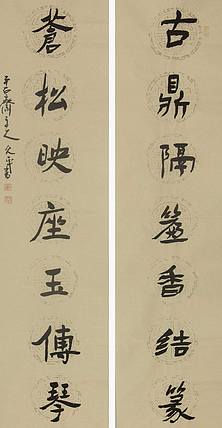 古鼎隔簾香結篆
蒼松映座玉傳琴